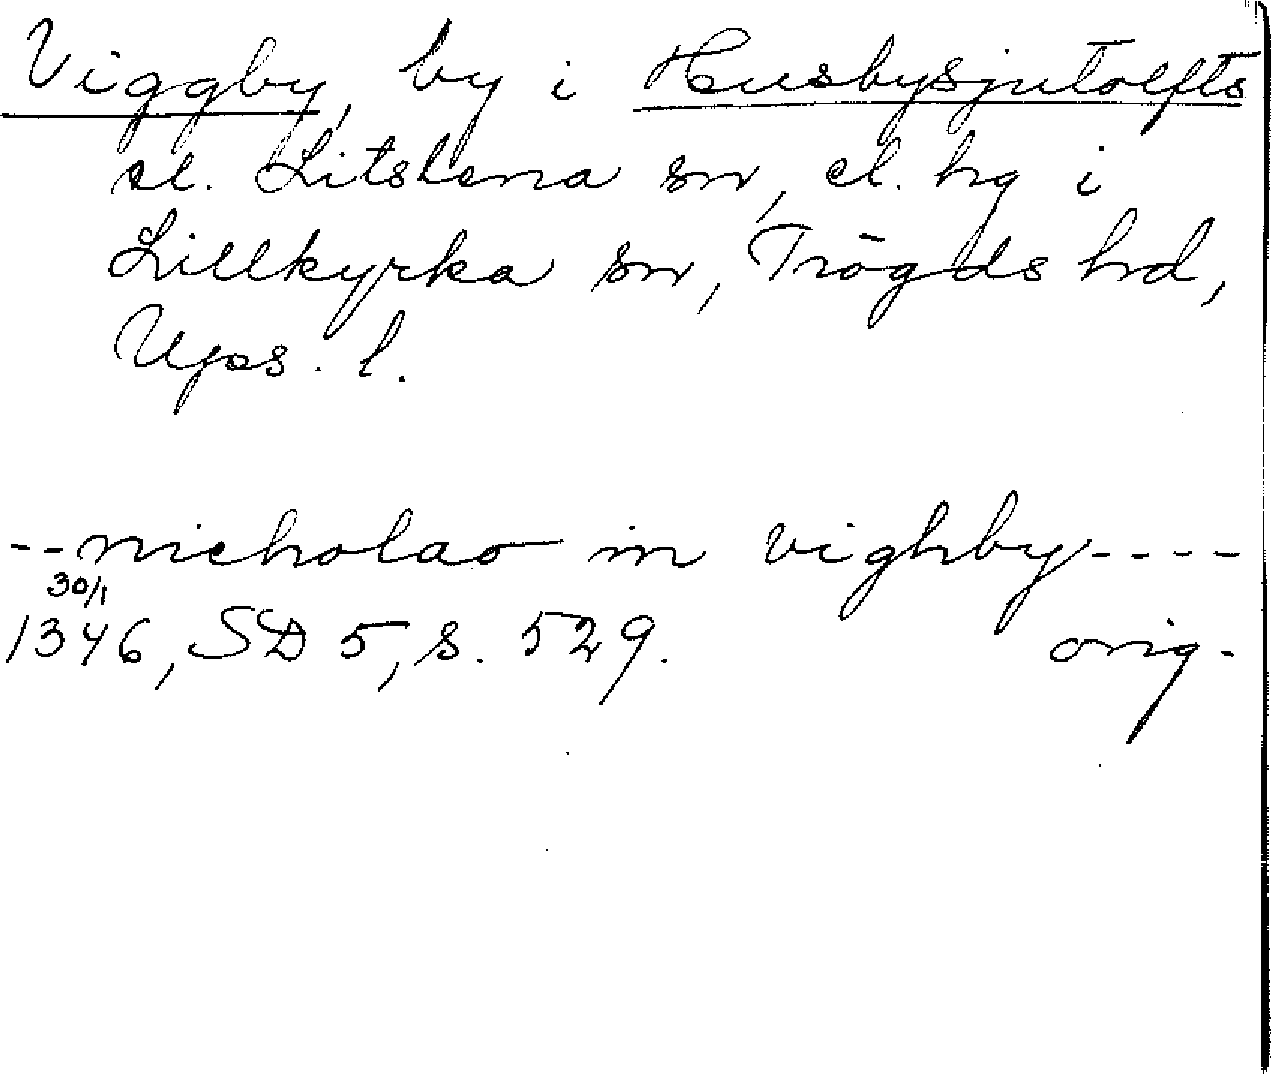 Viggby, by i Husbysjutolfts
el. Litslena sn, el. hg i
Lillkyrka sn, Trögds hd,
Upps. l.
--nicholao in vighby----
30/1
1346, SD 5, s. 529. orig.